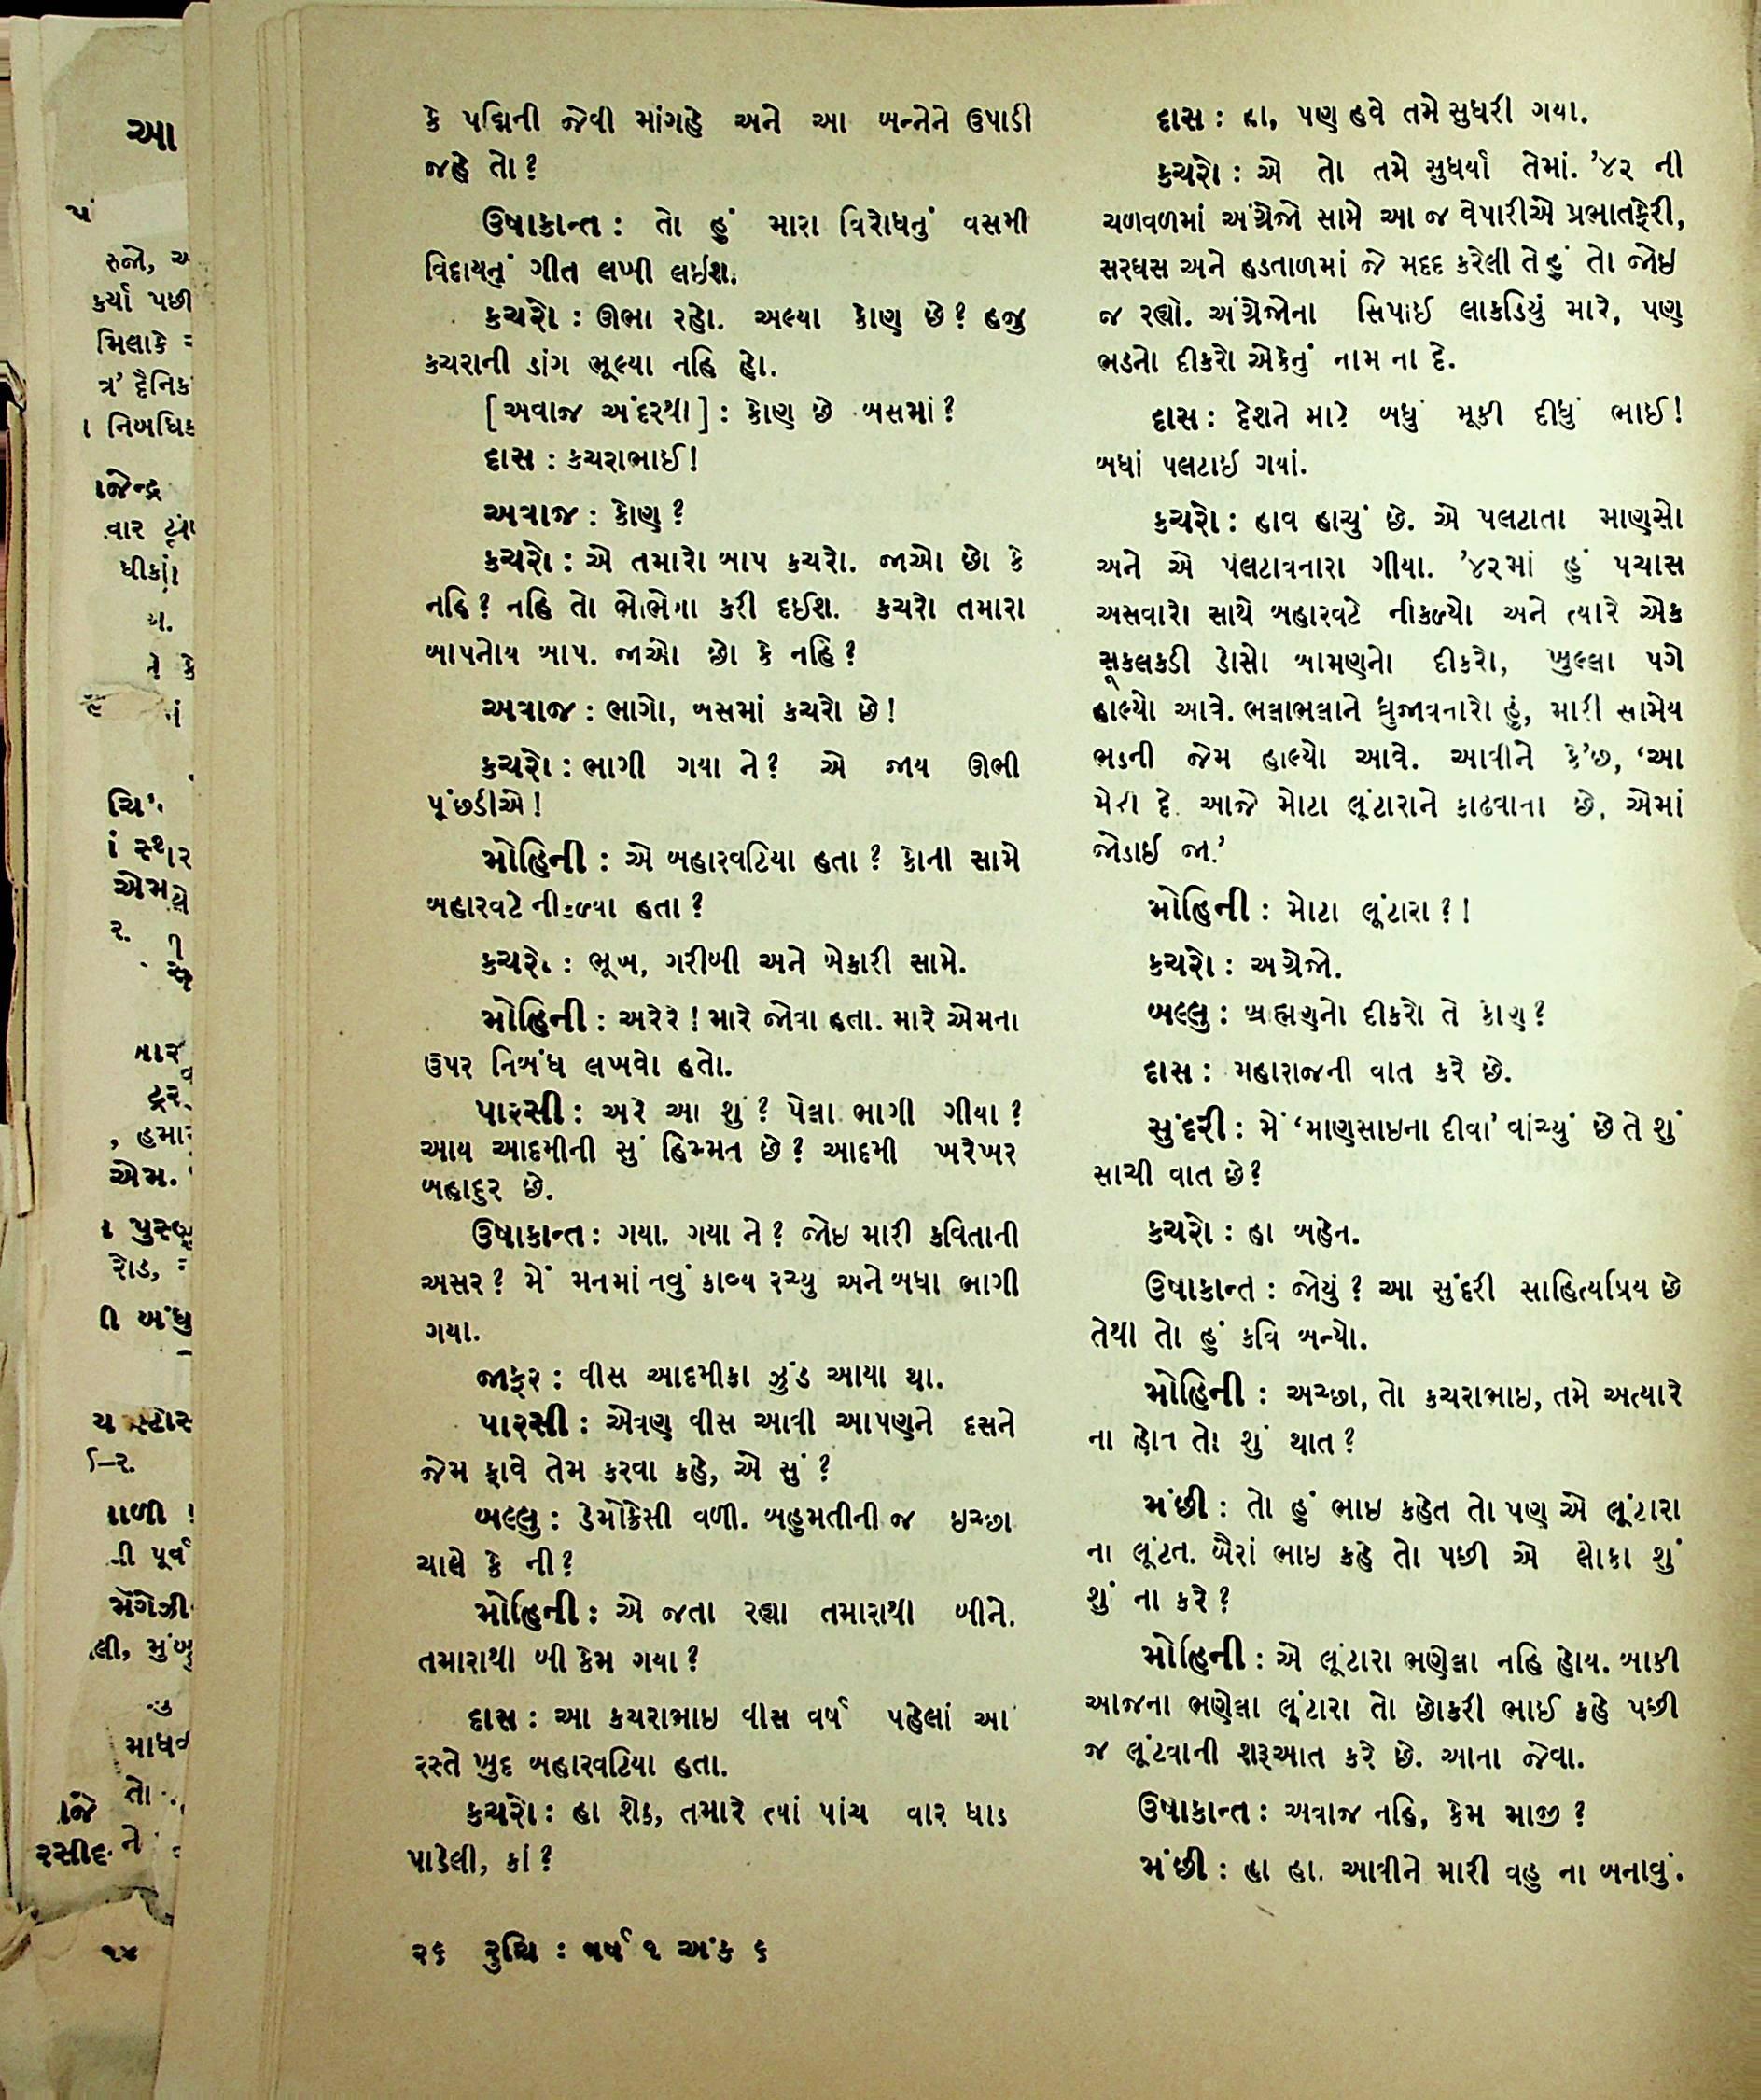 કે પદ્મિની જેવી માંગહે અને આ બન્નેને ઉપાડી
જહે તો?
ઉષાકાન્ત : તો હું મારા વિરોધનું વસમી
વિદાયનું ગીત લખી લઈશ.
કચરો : ઊભા રહો. અલ્યા કોણ છે? હજુ
કચરાની ડાંગ ભૂલ્યા નહિ હો.
[અવાજ અંદરથી] : કોણ છે બસમાં?
દાસ : કચરાભાઈ!
અવાજ : કોણ?
કચરો : એ તમારો બાપ કચરો. જાઓ છો કે
નહિ? નહિ તો ભોંભેગા કરી દઈશ. કચરો તમારા
બાપનોય બાપ. જાઓ છો કે નહિ?
અવાજ : ભાગો, બસમાં કચરો છે!
કચરો : ભાગી ગયા ને? એ જાય ઊભી
પૂંછડીએ!
મોહિની : એ બહારવટિયા હતા? કોના સામે
બહારવટે નીકળ્યા હતા?
કચરો : ભૂખ, ગરીબી અને બેકારી સામે.
મોહિની : અરેરે! મારે જોવા હતા. મારે એમના
ઉપર નિબંધ લખવો હતો.
પારસી : અરે આ શું? પેલા ભાગી ગીયા?
આય આદમીની સું હિમ્મત છે? આદમી ખરેખર
બહાદુર છે.
ઉષાકાન્ત : ગયા. ગયા ને? જોઇ મારી કવિતાની
અસર? મેં મનમાં નવું કાવ્ય રચ્યુ અને બધા ભાગી
ગયા.
જાફર : વીસ આદમીકા ઝુંડ આયા થા.
પારસી : એવણ વીસ આવી આપણને દસને
જેમ ફાવે તેમ કરવા કહે, એ સું?
બલ્લુ : ડેમોક્રેસી વળી. બહુમતીની જ ઇચ્છા
ચાલે કે ની?
મોહિની : એ જતા રહ્યા તમારાથી બીને.
તમારાથી બી કેમ ગયા?
દાસ : આ કચરાભાઇ વીસ વર્ષ પહેલાં આ
રસ્તે ખુદ બહારવટિયા હતા.
કચરો : હા શેઠ, તમારે ત્યાં પાંચ વાર ધાડ
પાડેલી, કાં?
દાસ : હા, પણ હવે તમે સુધરી ગયા.
કચરો : એ તો તમે સુધર્યા તેમાં. '૪૨ ની
ચળવળમાં અંગ્રેજો સામે આ જ વેપારીએ પ્રભાતફેરી,
સરઘસ અને હડતાળમાં જે મદદ કરેલી તે હું તો જોઇ
જ રહ્યો. અંગ્રેજોના સિપાઈ લાકડિયું મારે, પણ
ભડનો દીકરો એકેનું નામ ના દે.
દાસ : દેશને માટે બધું મૂકી દીધું ભાઈ!
બધાં પલટાઇ ગયાં.
કચરો : હાવ હાચું છે. એ પલટાતા માણસો
અને એ પલટાવનારા ગીયા. '૪૨માં હું પચાસ
અસવારો સાથે બહારવટે નીકળ્યો અને ત્યારે એક
સૂકલકડી ડોસો બામણનો દીકરો, ખુલ્લા પગે
હાલ્યો આવે. ભલાભલાને ધ્રુજાવનારો હું, મારી સામેય
ભડની જેમ હાલ્યો આવે. આવીને કે'છ, 'આ
મેલી દે. આજે મોટા લૂંટારાને કાઢવાના છે, એમાં
જોડાઇ જા.'
મોહિની : મોટા લૂંટારા?!
કચરો : અગ્રેજો.
બલ્લુ : બ્રાહ્મણનો દીકરો તે કોણ?
દાસ : મહારાજની વાત કરે છે.
સુંદરી : મેં 'માણસાઇના દીવા' વાંચ્યું છે તે શું
સાચી વાત છે?
કચરો : હા બહેન.
ઉષાકાન્ત : જોયું? આ સુંદરી સાહિત્યપ્રિય છે
તેથી તો હું કવિ બન્યો.
મોહિની : અચ્છા, તો કચરાભાઇ, તમે અત્યારે
ના હોત તો શું થાત?
મંછી : તો હું ભાઇ કહેત તો પણ એ લૂંટારા
ના લૂંટત. બૈરાં ભાઇ કહે તો પછી એ લોકો શું
શું ના કરે?
મોહિની : એ લૂંટારા ભણેલા નહિ હોય. બાકી
આજના ભણેલા લૂંટારા તો છોકરી ભાઈ કહે પછી
જ લૂંટવાની શરૂઆત કરે છે. આના જેવા.
ઉષાકાન્ત : અવાજ નહિ, કેમ માજી?
મંછી : હા હા. આવીને મારી વહુ ના બનાવું.
૨૬ રુચિ : વર્ષ ૧ અંક ૬